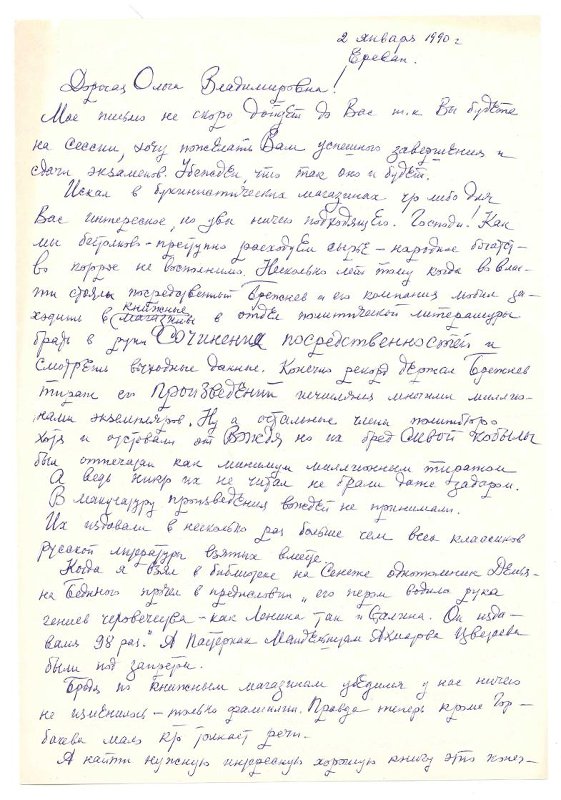 2 января 1990 г
Ереван.
Дорогая Ольга Владимировна!
Мое письмо не скоро дойдет до Вас т.к. Вы будете
на сессии, хочу пожелать Вам успешного завершения и
сдачи экзаменов. Убежден, что так оно и будет.
Искал в букинистических магазинах что либо для
Вас интересное, но увы ничего подходящего. Господи! Как
мы бестолково - преступно расходуем сырье - народное богатст-
во которое не восполнимо. Несколько лет тому когда во вла-
сти стояли посредственный Брежнев и его компания любил за-
ходить в книжные магазины в отдел политической литературы
брать в руки Сочинения посредственностей и
смотреть выходные данные. Конечно рекорд держал Брежнев
тираж его ПРОИЗВЕДЕНИЙ исчислялся многими миллио-
нами экземпляров. Ну а остальные члены политбюро
хотя и отставали от Вождя но их бред Сивой кобылы
был отпечатан как минимум миллионным тиражом
А ведь никто их не читал не брали даже задаром.
В макулатуру произведения вождей не принимали.
Их издавали в несколько раз больше чем всех классиков
русской литературы взятых вместе.
Когда я взял в библиотеке на Сенеже однотомник Демья-
на Бедного прочел в предисловии „его пером водила рука
гениев человечества - как Ленина так и Сталина. Он изда-
вался 98 раз." А Пастернак Мандельштам Ахматова Цветаева
были под запретом.
Бродя по книжным магазинам убедился у нас ничего
не изменилось - только фамилии. Правда теперь кроме Гор-
бачева мало кто толкает речи.
А найти нужную интересную хорошую книгу это